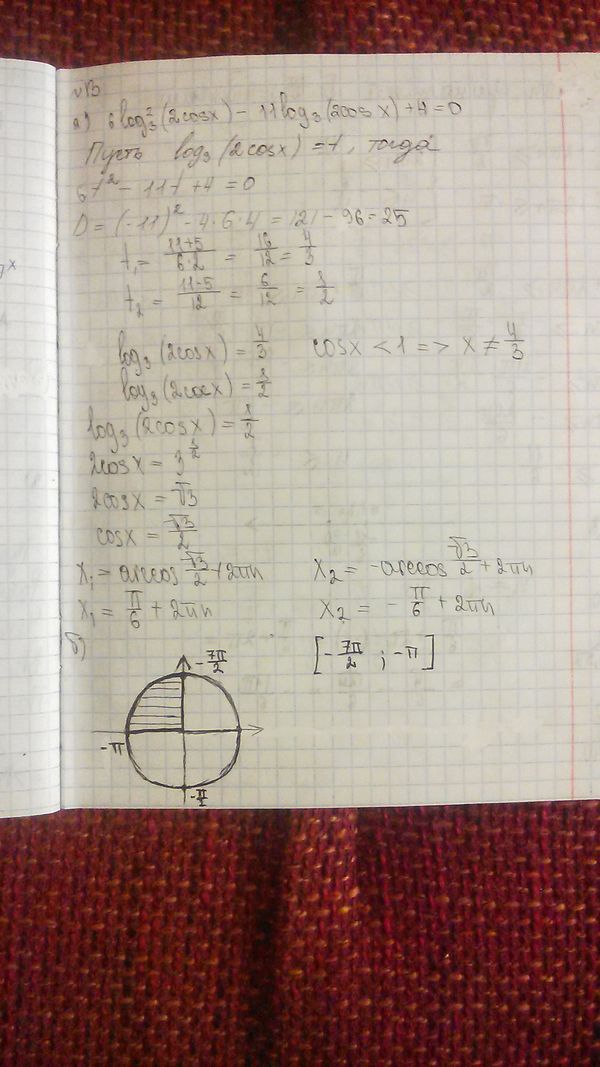 №13
а) 6log₃²(2cosx) - 11log₃(2cos x) + 4 = 0
Пусть log₃(2cosx) = t, тогда
6t² - 11t + 4 = 0
D = (-11)² - 4·6·4 = 121 - 96 = 25
t₁ = (11+5)/(6·2) = 16/12 = 4/3
t₂ = (11-5)/12 = 6/12 = 1/2
log₃(2cosx) = 4/3 cosx < 1 => x ≠ 4/3
log₃(2cosx) = 1/2
log₃(2cosx) = 1/2
2cosx = 3^(1/2)
2cosx = √3
cosx = √3/2
x₁ = arccos √3/2 + 2πn x₂ = -arccos √3/2 + 2πn
x₁ = π/6 + 2πn x₂ = -π/6 + 2πn
б) [-7π/2 ; -π]
-7π/2
-π
-π/2